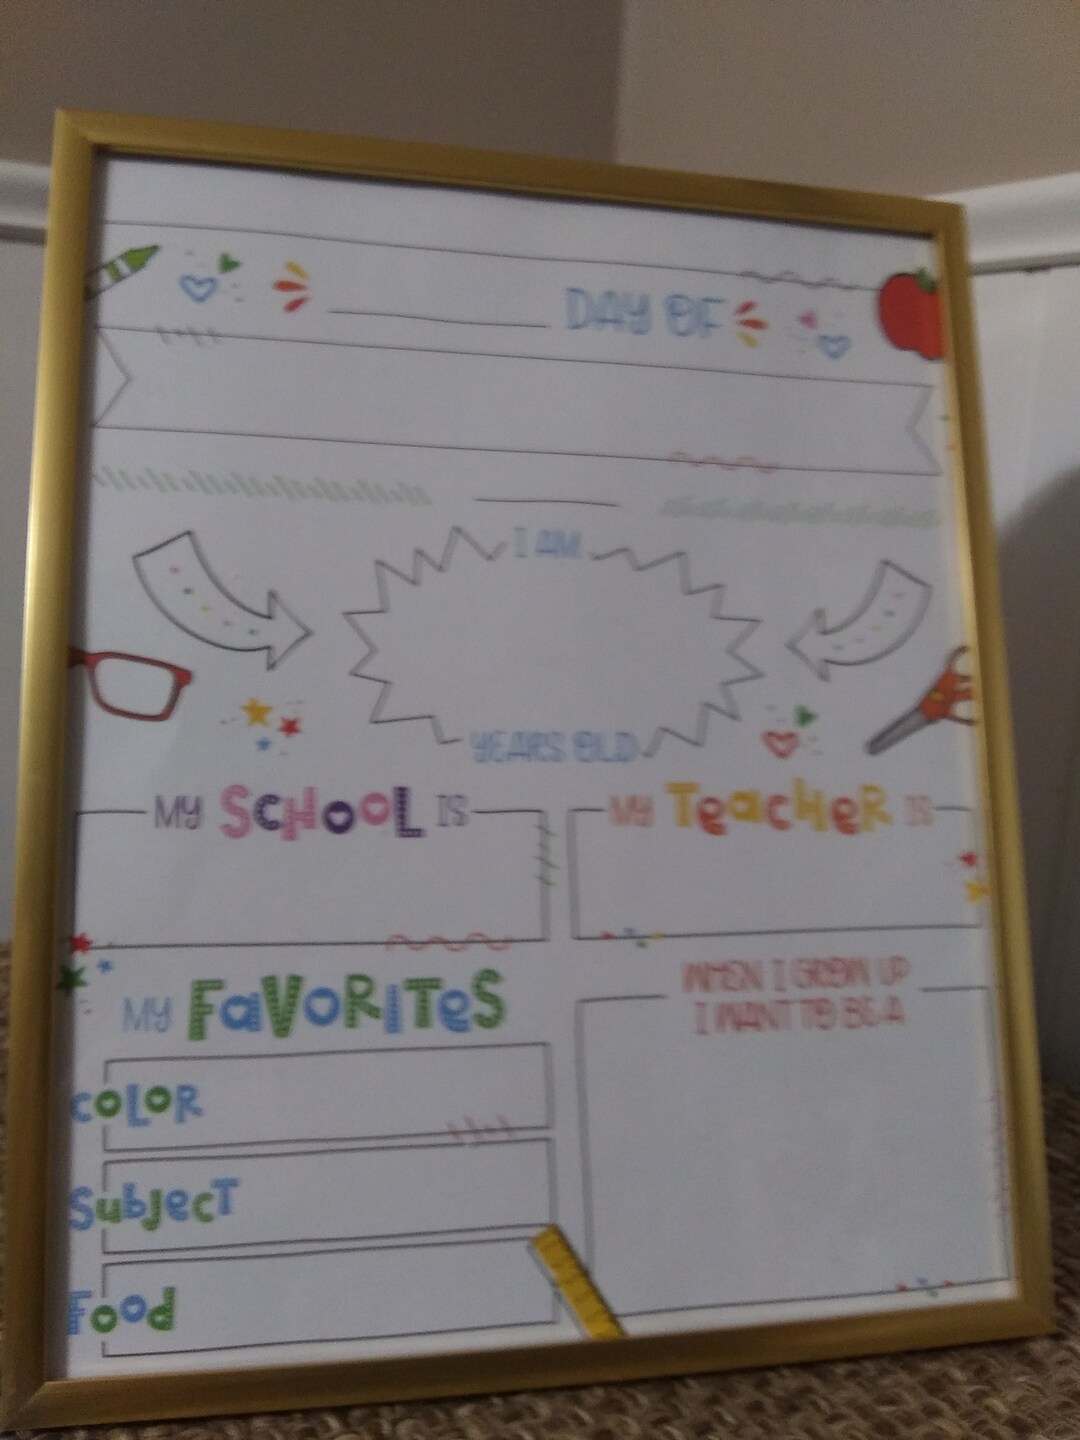 DAY OF
I AM
YEARS OLD
MY SCHOOL IS
MY TEACHER IS
MY FAVORITES
COLOR
SUBJECT
FOOD
WHEN I GROW UP
I WANT TO BE A